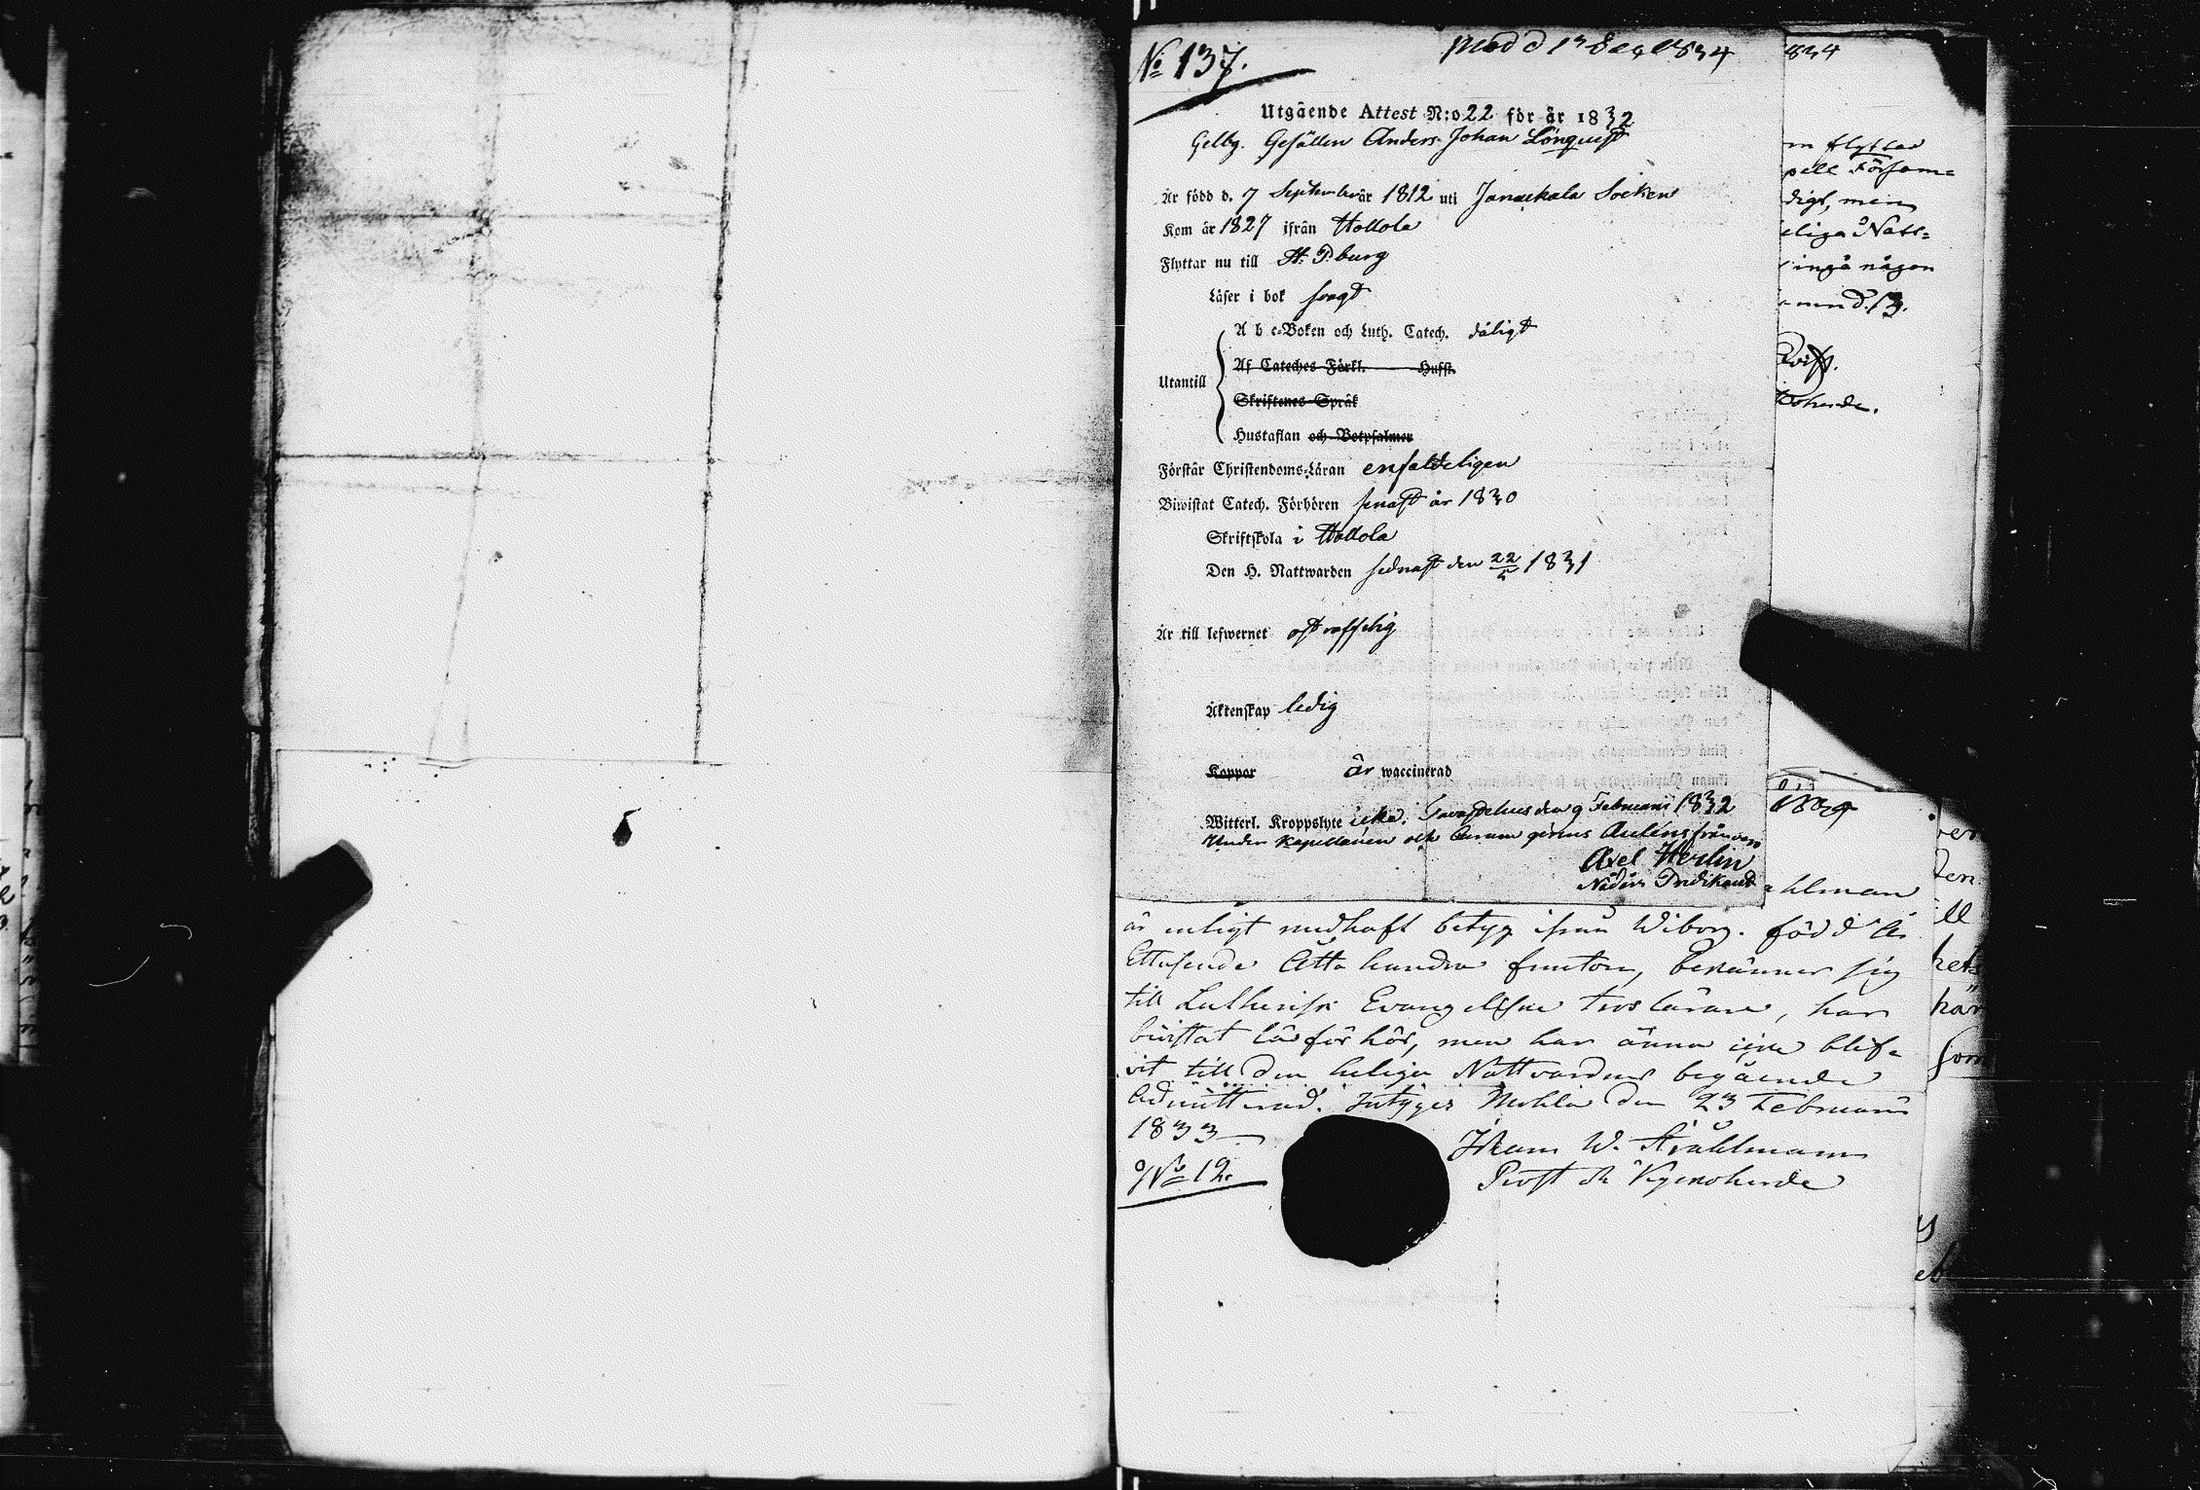 No 137.
Utgående Attest N:o 22 för år 1832
Gelbg. Gesällen Anders Johan Lönquist
Är född d. 7 September år 1812 uti Janakkala Socken
Kom år 1827 ifrån Hollola
Flyttar nu till St. P.burg
Läser i bok svagt
A b c-Boken och Luth. Catech. dåligt
Af Cateches Förkl. Huffl.
Utantill
Skriftenes Språk
Hustaflan och Botpsalmer
Förstår Christendoms-Läran enfaldeligen
Biwistat Catech. Förhören senast år 1830
Skriftskola i Hollola
Den H. Nattwarden sednast den 22/5 1831
Är till lefwernet ostrafflig
Äktenskap ledig
Koppor är waccinerad
Witterl. Kroppslyte icke. Tavastehus den 9 Februarii 1832
Under Kapellanen och Curam gerens Auléns frånvaro
Axel Herlin
Nådårs Predikant
834
digt, men
ingå någon
1834
ahlman
är enligt medhaft betyg ifrån Wiborg. född År
Ettusende Åtta hundra femton, bekänner sig
till Lutherisk Evangeliska troslärare, har
bivistat läsförhör, men har ännu icke blif-
vit till den heliga Nattvardens begående
admitterad. Intygar Mohla den 23 Februarii
1833
No 12.
Johan W. Stråhlmann
Prost och Kyrkoherde